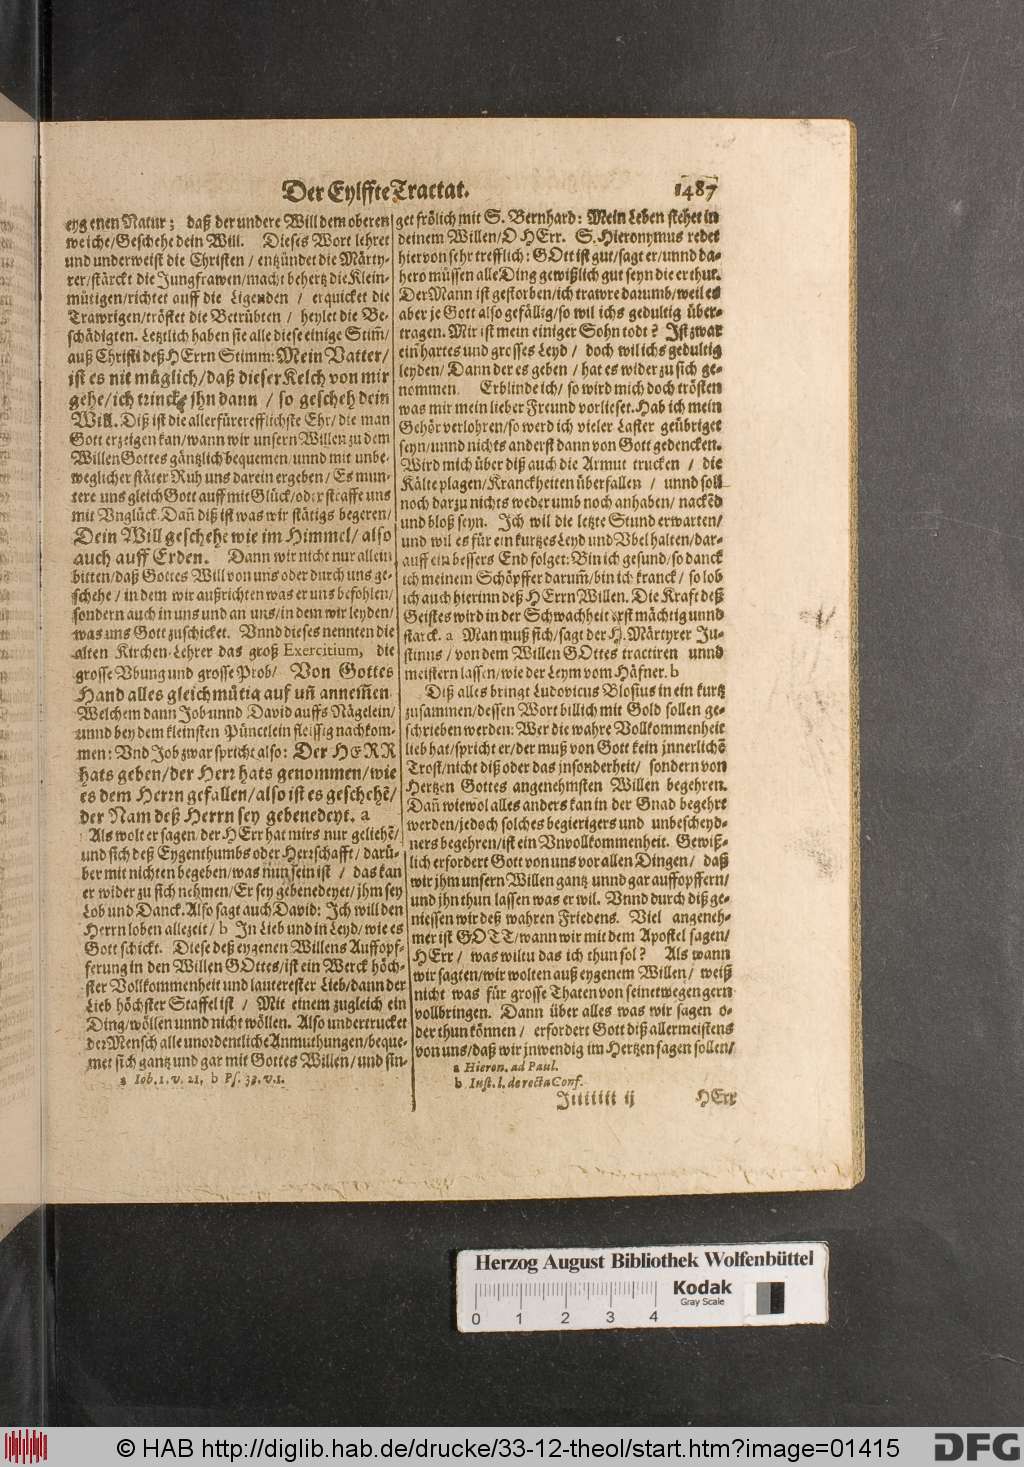 Der Eylffte Tractat. 1487
eygenen Natur; daß der undere Will dem oberen
weiche/Geschehe dein Will. Dieses Wort lehret
und underweist die Christen / entzündet die Märty-
rer/stärckt die Jungfrawen/macht behertz die Klein-
mütigen/richtet auff die Ligenden / erquicket die
Trawrigen/tröstet die Betrübten / heylet die Be-
schädigten. Letztlich haben sie alle diese einige Stim̃/
auß Christi deß HErrn Stimm: Mein Vatter/
ist es nit müglich/daß dieser Kelch von mir
gehe/ich trincke jhn dann / so gescheh dein
Will. Diß ist die allerfürerefflichste Ehr/die man
Gott erzeigen kan/wann wir unsern Willen zu dem
Willen Gottes gäntzlich bequemen/unnd mit unbe-
weglicher stäter Ruh uns darein ergeben/Es mun-
tere uns gleich Gott auff mit Glück/oder straffe uns
mit Vnglück. Dañ diß ist was wir stätigs begeren/
Dein Will geschehe wie im Himmel/also
auch auff Erden. Dann wir nicht nur allein
bitten/daß Gottes Will von uns oder durch uns ge-
schehe / in dem wir außrichten was er uns befohlen/
sondern auch in uns und an uns/in dem wir leyden/
was uns Gott zuschicket. Vnnd dieses nennten die
alten Kirchen-Lehrer das groß Exercitium, die
grosse Vbung und grosse Prob/ Von Gottes
Hand alles gleichmütig auf uñ annem̃en
Welchem dann Job unnd David auffs Nägelein/
unnd bey dem kleinsten Püncrlein fleissig nachkom-
men: Vnd Job zwar spricht also: Der HERR
hats geben/der Herr hats genommen/wie
es dem Herrn gefallen/also ist es geschehẽ/
der Nam deß Herrn sey gebenedeyt. a
Als wolt er sagen/der HErr hat mirs nur geliehẽ/
und sich deß Eygenthumbs oder Herrschafft/darü-
ber mit nichten begeben/was nun sein ist / das kan
er wider zu sich nehmen/Er sey gebenedeyet/jhm sey
Lob und Danck. Also sagt auch David: Ich will den
Herrn loben allezeit/ b In Lieb und in Leyd/wie es
Gott schickt. Diese deß eygenen Willens Auffopf-
ferung in den Willen GOttes/ist ein Werck höch-
ster Vollkommenheit und lauterester Lieb/dann der
Lieb höchster Staffel ist / Mit einem zugleich ein
Ding/wöllen unnd nicht wöllen. Also undertrucket
der Mensch alle unordentliche Anmuthungen/beque-
met sich gantz und gar mit Gottes Willen/und sin-
a Iob. 1. v. 21. b Ps. 33. v. 1.
get frölich mit S. Bernhard: Mein Leben stehet in
deinem Willen/O HErr. S. Hieronymus redet
hiervon sehr trefflich: GOtt ist gut/sagt er/unnd da-
hero müssen alle Ding gewißlich gut seyn die er thut.
Der Mann ist gestorben/ich trawre darumb/weil es
aber je Gott also gefällig/so wil ichs gedultig über-
tragen. Mir ist mein einiger Sohn todt? Ist zwar
ein hartes und grosses Leyd / doch wil ichs gedultig
leyden/Dann der es geben / hat es wider zu sich ge-
nommen. Erblinde ich/so wird mich doch trösten
was mir mein lieber Freund vorlieset. Hab ich mein
Gehör verlohren/so werd ich vieler Laster geübriget
seyn/unnd nichts anderst dann von Gott gedencken.
Wird mich über diß auch die Armut trucken / die
Kälte plagen/Kranckheiten überfallen / unnd soll
noch darzu nichts weder umb noch anhaben/nackẽd
und bloß seyn. Ich wil die letzte Stund erwarten/
und wil es für ein kurtzes Leyd und Vbel halten/dar-
auff ein bessers End folget: Bin ich gesund/so danck
ich meinem Schöpffer darum̃/bin ich kranck/so lob
ich auch hierinn deß HErrn Willen. Die Kraft deß
Geistes wird in der Schwachheit erst mächtig unnd
starck. a Man muß sich/sagt der H. Märtyrer Ju-
stinus / von dem Willen GOttes tractiren unnd
meistern lassen/wie der Leym vom Häfner. b
Diß alles bringt Ludovicus Blosius in ein kurtz
zusammen/dessen Wort billich mit Gold sollen ge-
schrieben werden: Wer die wahre Vollkommenheit
lieb hat/spricht er/der muß von Gott kein jnnerlichẽ
Trost/nicht diß oder das jnsonderheit/ sondern von
Hertzen Gottes angenehmsten Willen begehren.
Dañ wiewol alles anders kan in der Gnad begehrt
werden/jedoch solches begierigers und unbescheyd-
ners begehren/ist ein Vnvollkommenheit. Gewiß-
lich erfordert Gott von uns vor allen Dingen/ daß
wir jhm unsern Willen gantz unnd gar auffopffern/
und jhn thun lassen was er wil. Vnnd durch diß ge-
niessen wir deß wahren Friedens. Viel angeneh-
mer ist GOTT/wann wir mit dem Apostel sagen/
HErr / was wiltu das ich thun sol? Als wann
wir sagten/wir wolten auß eygenem Willen/ weiß
nicht was für grosse Thaten von seinetwegen gern
vollbringen. Dann über alles was wir sagen o-
der thun können / erfordert Gott diß allermeistens
von uns/daß wir jnwendig im Hertzen sagen sollen/
a Hieron. ad Paul.
b Iust. l. de recta Conf.
Jiiiiii ij HErr
Herzog August Bibliothek Wolfenbüttel
Kodak
Gray Scale
0 1 2 3 4
© HAB http://diglib.hab.de/drucke/33-12-theol/start.htm?image=01415
DFG